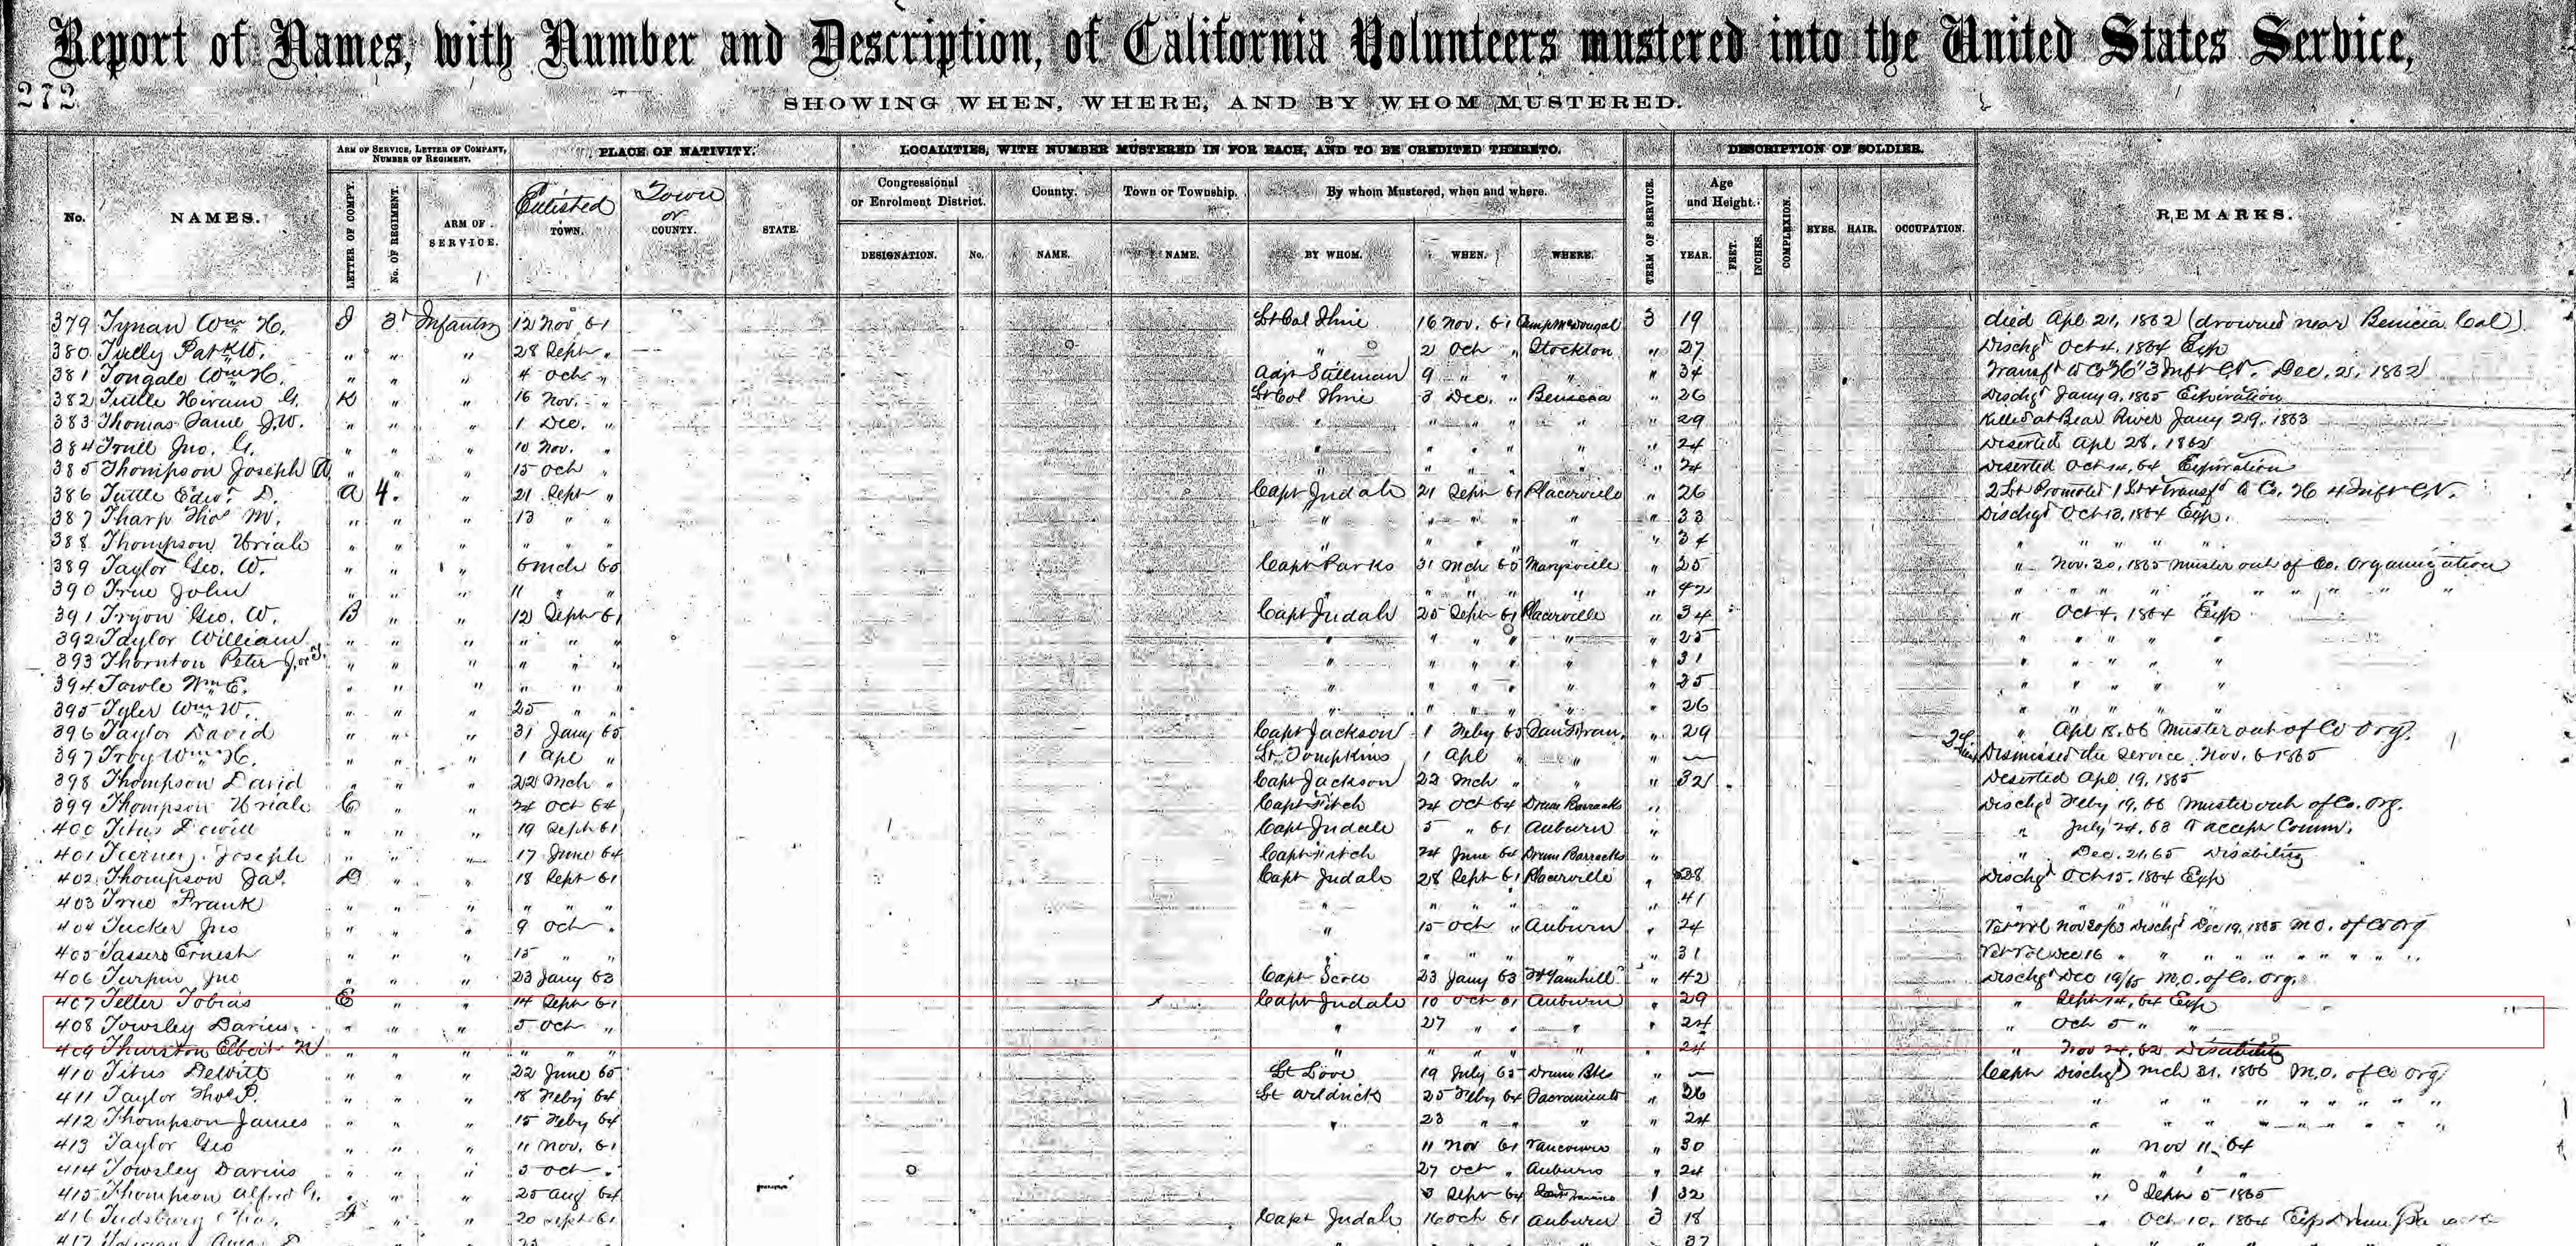 Report of Names, with Number and Description, of California Volunteers mustered into the United States Service,
272
SHOWING WHEN, WHERE, AND BY WHOM MUSTERED.
ARM OF SERVICE, LETTER OF COMPANY, NUMBER OF REGIMENT. PLACE OF NATIVITY. LOCALITIES, WITH NUMBER MUSTERED IN FOR EACH, AND TO BE CREDITED THERETO. DESCRIPTION OF SOLDIER.
No. NAMES. LETTER OF COMPY. No. OF REGIMENT. ARM OF SERVICE. Enlisted TOWN. Town or COUNTY. STATE. Congressional or Enrolment District. County. Town or Township. By whom Mustered, when and where. TERM OF SERVICE. Age and Height. COMPLEXION. EYES. HAIR. OCCUPATION. REMARKS.
DESIGNATION. No. NAME. NAME. BY WHOM. WHEN. WHERE. YEAR. FEET. INCHES.
379 Tynan Wm H. I 3d Infantry 12 Nov 61 Lt Col 16 Nov. 61 Camp McDougal 3 19 died Apl 21, 1862 (drowned near Benicia Cal)
380 Tully Patk W. " " " 28 Sept " " 2 Oct " Stockton " 27 Dischgd Oct 4, 1864 Exp
381 Tongale Wm H. " " " 4 Oct " Adjt Stillman 9 " " " " 34 Transfd to Co "H" 3 Inft CV. Dec. 21, 1862
382 Tuttle Hiram G. K " " 16 Nov. " Lt Col 3 Dec. " Benicia " 26 Dischgd Jany 9, 1865 Expiration
383 Thomas J.W. " " " 1 Dec. " " " " " " " 29 Killed at Bear River Jany 29, 1863
384 Truell Jno. G. " " " 10 Nov. " " " " " " " 24 Deserted Apl 28, 1862
385 Thompson Joseph A. " " " 15 Oct " " " " " " " 24 Deserted Oct 14, 64 Expiration
386 Tuttle Edwd. D. A 4. " 21 Sept " Capt Judah 21 Sept 61 Placerville " 26 2 Lt Promoted 1 Lt & Transfd to Co. H 4 Inft CV.
387 Tharp Thos M. " " " 13 " " " " " " " " 33 Dischgd Oct 13, 1864 Exp.
388 Thompson Uriah " " " " " " " " " " " " 34 " " " " " "
389 Taylor Geo. W. " " " 6 Mch 65 Capt Parks 31 Mch 65 Marysville " 25 " Nov. 30, 1865 Muster out of Co. Organization
390 True John " " " 11 " " " " " " " " 42 " " " " " " " "
391 Tryon Geo. W. B " " 12 Sept 61 Capt Judah 25 Sept 61 Placerville " 34 " Oct 4, 1864 Exp
392 Taylor William " " " " " " " " " " " " 25 " " " " "
393 Thornton Peter J. or T. " " " " " " " " " " " " 31 " " " " "
394 Towle Wm E. " " " " " " " " " " " " 25 " " " " "
395 Tyler Wm W. " " " 25 " " " " " " " " 26 " " " " "
396 Taylor David " " " 31 Jany 65 Capt Jackson 1 Feby 65 San Fran. " 29 " Apl 18, 66 Muster out of Co Org.
397 Troy Wm H. " " " 1 Apl " Lt Tompkins 1 Apl " " " — Dismissed the Service, Nov. 6 1865
398 Thompson David " " " 22 Mch " Capt Jackson 22 Mch " " " 32 Deserted Apl 19, 1865
399 Thompson Uriah C " " 24 Oct 64 Capt Fitch 24 Oct 64 Drum Barracks " Dischgd Feby 19, 66 Muster out of Co. Org.
400 Titus Dewitt " " " 19 Sept 61 Capt Judah 5 " 61 Auburn " " July 24, 63 to accept Comm.
401 Tierney Joseph " " " 17 June 64 Capt Fitch 24 June 64 Drum Barracks " " Dec. 21, 65 Disability
402 Thompson Jas. D " " 18 Sept 61 Capt Judah 28 Sept 61 Placerville " 38 Dischgd Oct 15, 1864 Exp
403 True Frank " " " " " " " " " " " " 41 " " " "
404 Tucker Jno " " " 9 Oct " " 15 Oct " Auburn " 24 Vet Vol Nov 20/63 Dischgd Dec 19, 1865 M.O. of Co Org
405 Tassero Ernest " " " 15 " " " " " " " " 31 Vet Vol Dec 16 " " " " " " " "
406 Turpin Jno " " " 23 Jany 63 Capt 23 Jany 63 Ft Yamhill " 42 Dischgd Dec 19/65 M.O. of Co. Org.
407 Teller Tobias E " " 14 Sept 61 Capt Judah 10 Oct 61 Auburn " 29 " Sept 14, 64 Exp
408 Towsley Darius " " " 5 Oct " " 27 " " " " 24 " Oct 5 " "
409 Thurston Elbert N " " " " " " " " " " " " 24 " Nov 24, 62 Disability
410 Titus DeWitt " " " 22 June 65 Lt Love 19 July 65 Drum Bks " — Capt Dischgd Mch 31, 1866 M.O. of Co Org
411 Taylor Thos P. " " " 18 Feby 64 Lt 25 Feby 64 Sacramento " 26 " " " " " " " "
412 Thompson James " " " 15 Feby 64 " 23 " " " " 24 " " " " " " " "
413 Taylor Geo " " " 11 Nov. 61 11 Nov 61 Vancouver " 30 " Nov 11, 64
414 Towsley Darius " " " 5 Oct " 27 Oct " Auburn " 24 " " " "
415 Thompson Alfred G. " " " 25 Aug 64 3 Sept 64 San Francisco 1 32 " Sept 5 1865
416 Tudsbury F " " 20 Sept 61 Capt Judah 16 Oct 61 Auburn 3 18 " Oct 10, 1864 Exp Drum
417 23 37